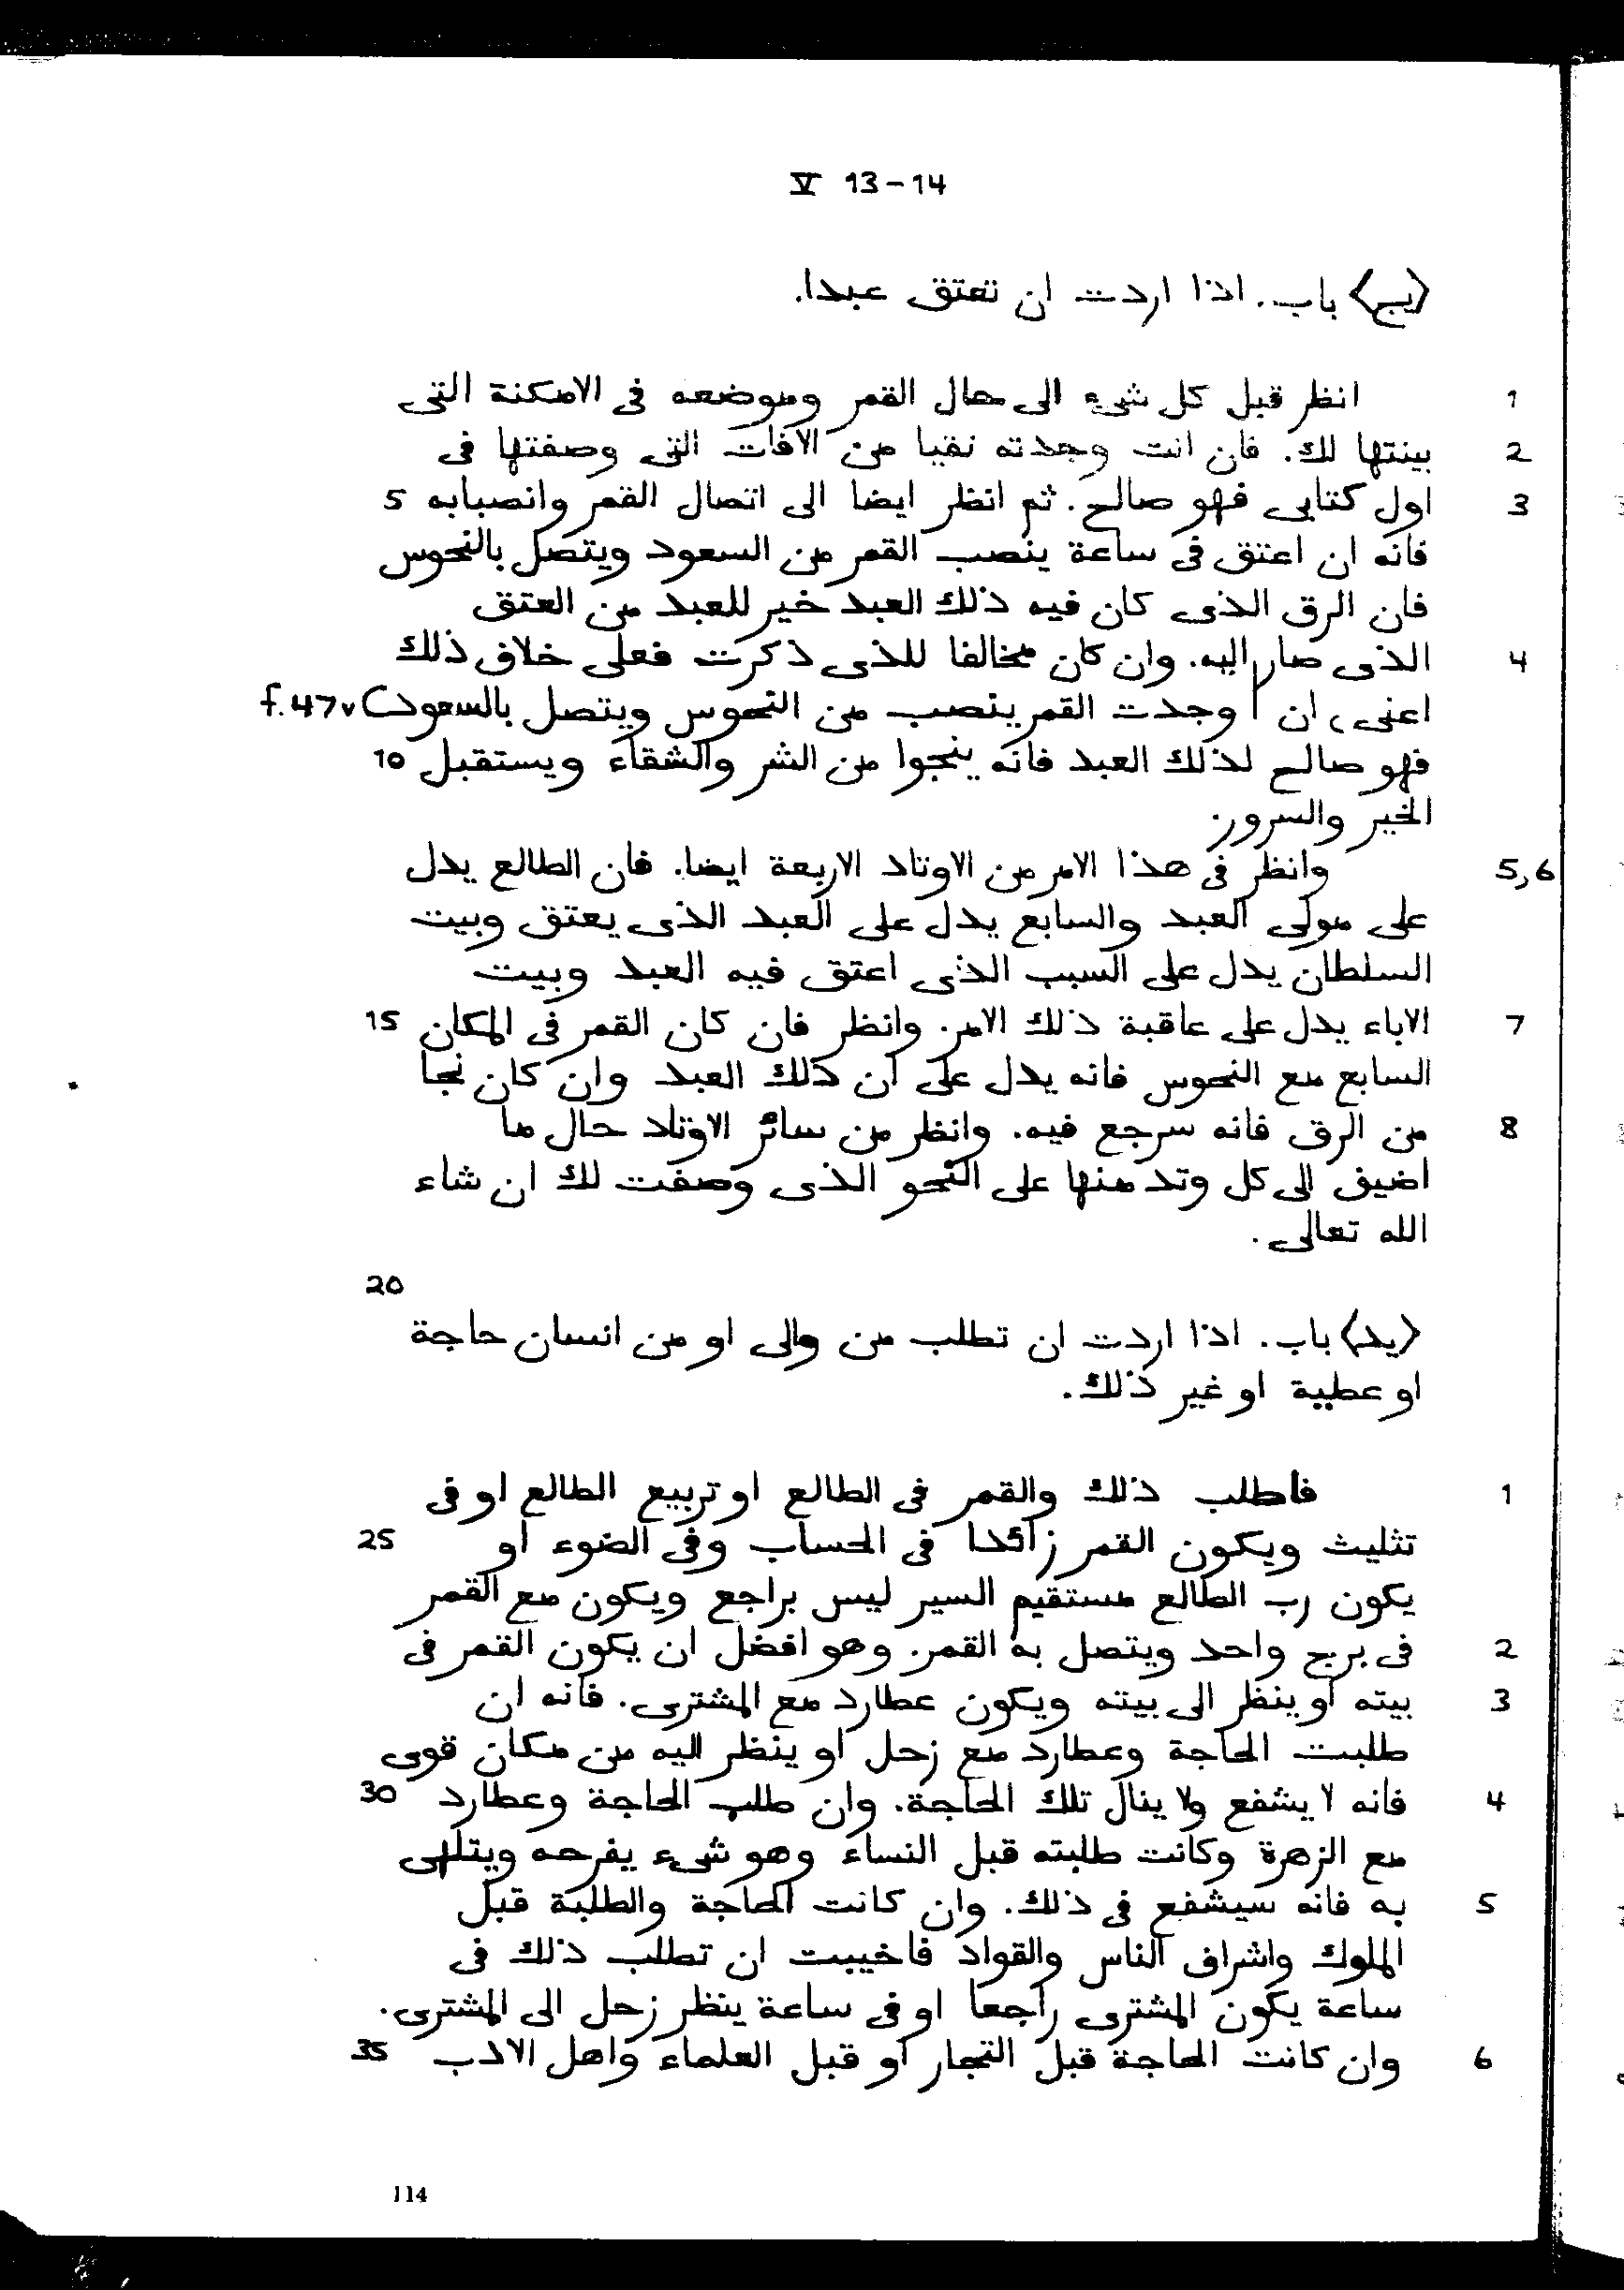 V 13-14
<يج> باب. اذا اردت ان تعتق عبدا.
1 انظر قبل كل شىء الى حال القمر وموضعه فى الامكنة التى
2 بينتها لك. فان انت وجدته نقيا من الافات التى وصفتها فى
3 اول كتابى فهو صالح. ثم انظر ايضا الى اتصال القمر وانصبابه 5
فانه ان اعتق فى ساعة ينصب القمر من السعود ويتصل بالنحوس
فان الرق الذى كان فيه ذلك العبد خير للعبد من العتق
4 الذى صار اليه. وان كان مخالفا للذى ذكرت فعلى خلاف ذلك
(اعنى، ان | وجدت القمر ينصب من النحوس ويتصل بالسعود) f. 47v
فهو صالح لذلك العبد فانه ينجوا من الشر والشقاء ويستقبل 10
الخير والسرور.
5,6 وانظر فى هذا الامر من الاوتاد الاربعة ايضا. فان الطالع يدل
على مولى العبد والسابع يدل على العبد الذى يعتق وبيت
السلطان يدل على السبب الذى اعتق فيه العبد وبيت
7 الاباء يدل على عاقبة ذلك الامر. وانظر فان كان القمر فى المكان 15
السابع مع النحوس فانه يدل على ان ذلك العبد وان كان نجا
8 من الرق فانه سرجع فيه. وانظر من سائر الاوتاد حال ما
اضيف الى كل وتد منها على النحو الذى وصفت لك ان شاء
الله تعالى.
20
<يد> باب. اذا اردت ان تطلب من والى او من انسان حاجة
او عطية او غير ذلك.
1 فاطلب ذلك والقمر فى الطالع او تربيع الطالع او فى
تثليث ويكون القمر زائدا فى الحساب وفى الضوء او 25
يكون رب الطالع مستقيم السير ليس براجع ويكون مع القمر
2 فى برج واحد ويتصل به القمر. وهو افضل ان يكون القمر فى
3 بيته او ينظر الى بيته ويكون عطارد مع المشترى. فانه ان
طلبت الحاجة وعطارد مع زحل او ينظر اليه من مكان قوى
4 فانه لا يشفع ولا ينال تلك الحاجة. وان طلب الحاجة وعطارد 30
مع الزهرة وكانت طلبته قبل النساء وهو شىء يفرحه ويتلهى
5 به فانه سيشفع فى ذلك. وان كانت الحاجة والطلبة قبل
الملوك واشراف الناس والقواد فاخيبت ان تطلب ذلك فى
ساعة يكون المشترى راجعا او فى ساعة ينظر زحل الى المشترى.
6 وان كانت الحاجة قبل التجار او قبل العلماء واهل الادب 35
114